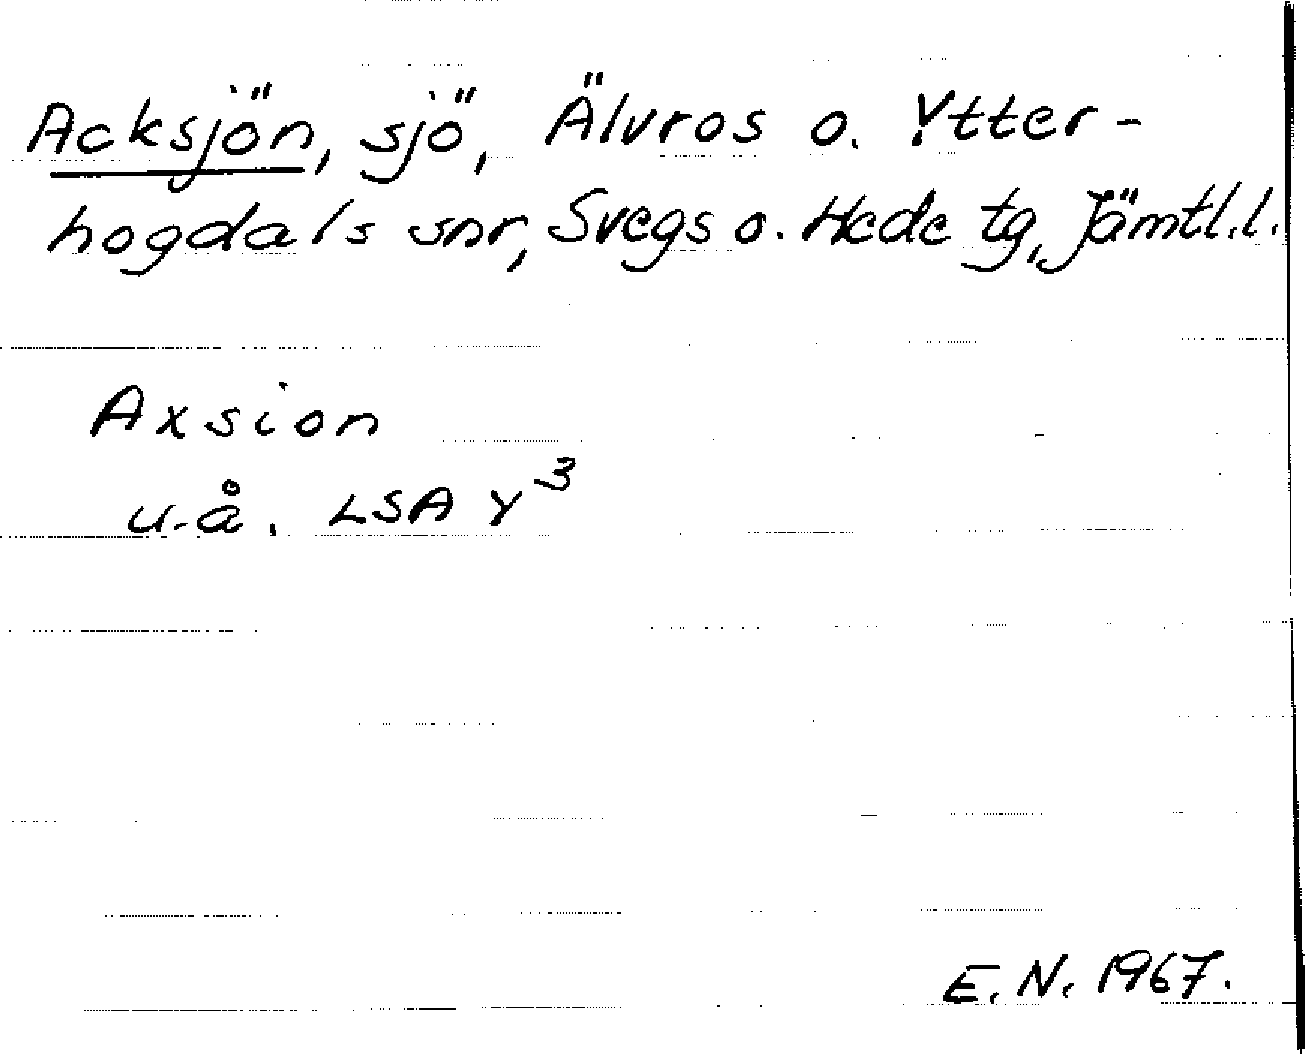 Acksjön, sjö, Älvros o. Ytter-
hogdals snr, Svegs o. Hede tg, Jämtl.l.
Axsion
u.å. LSA Y³
E.N. 1967.